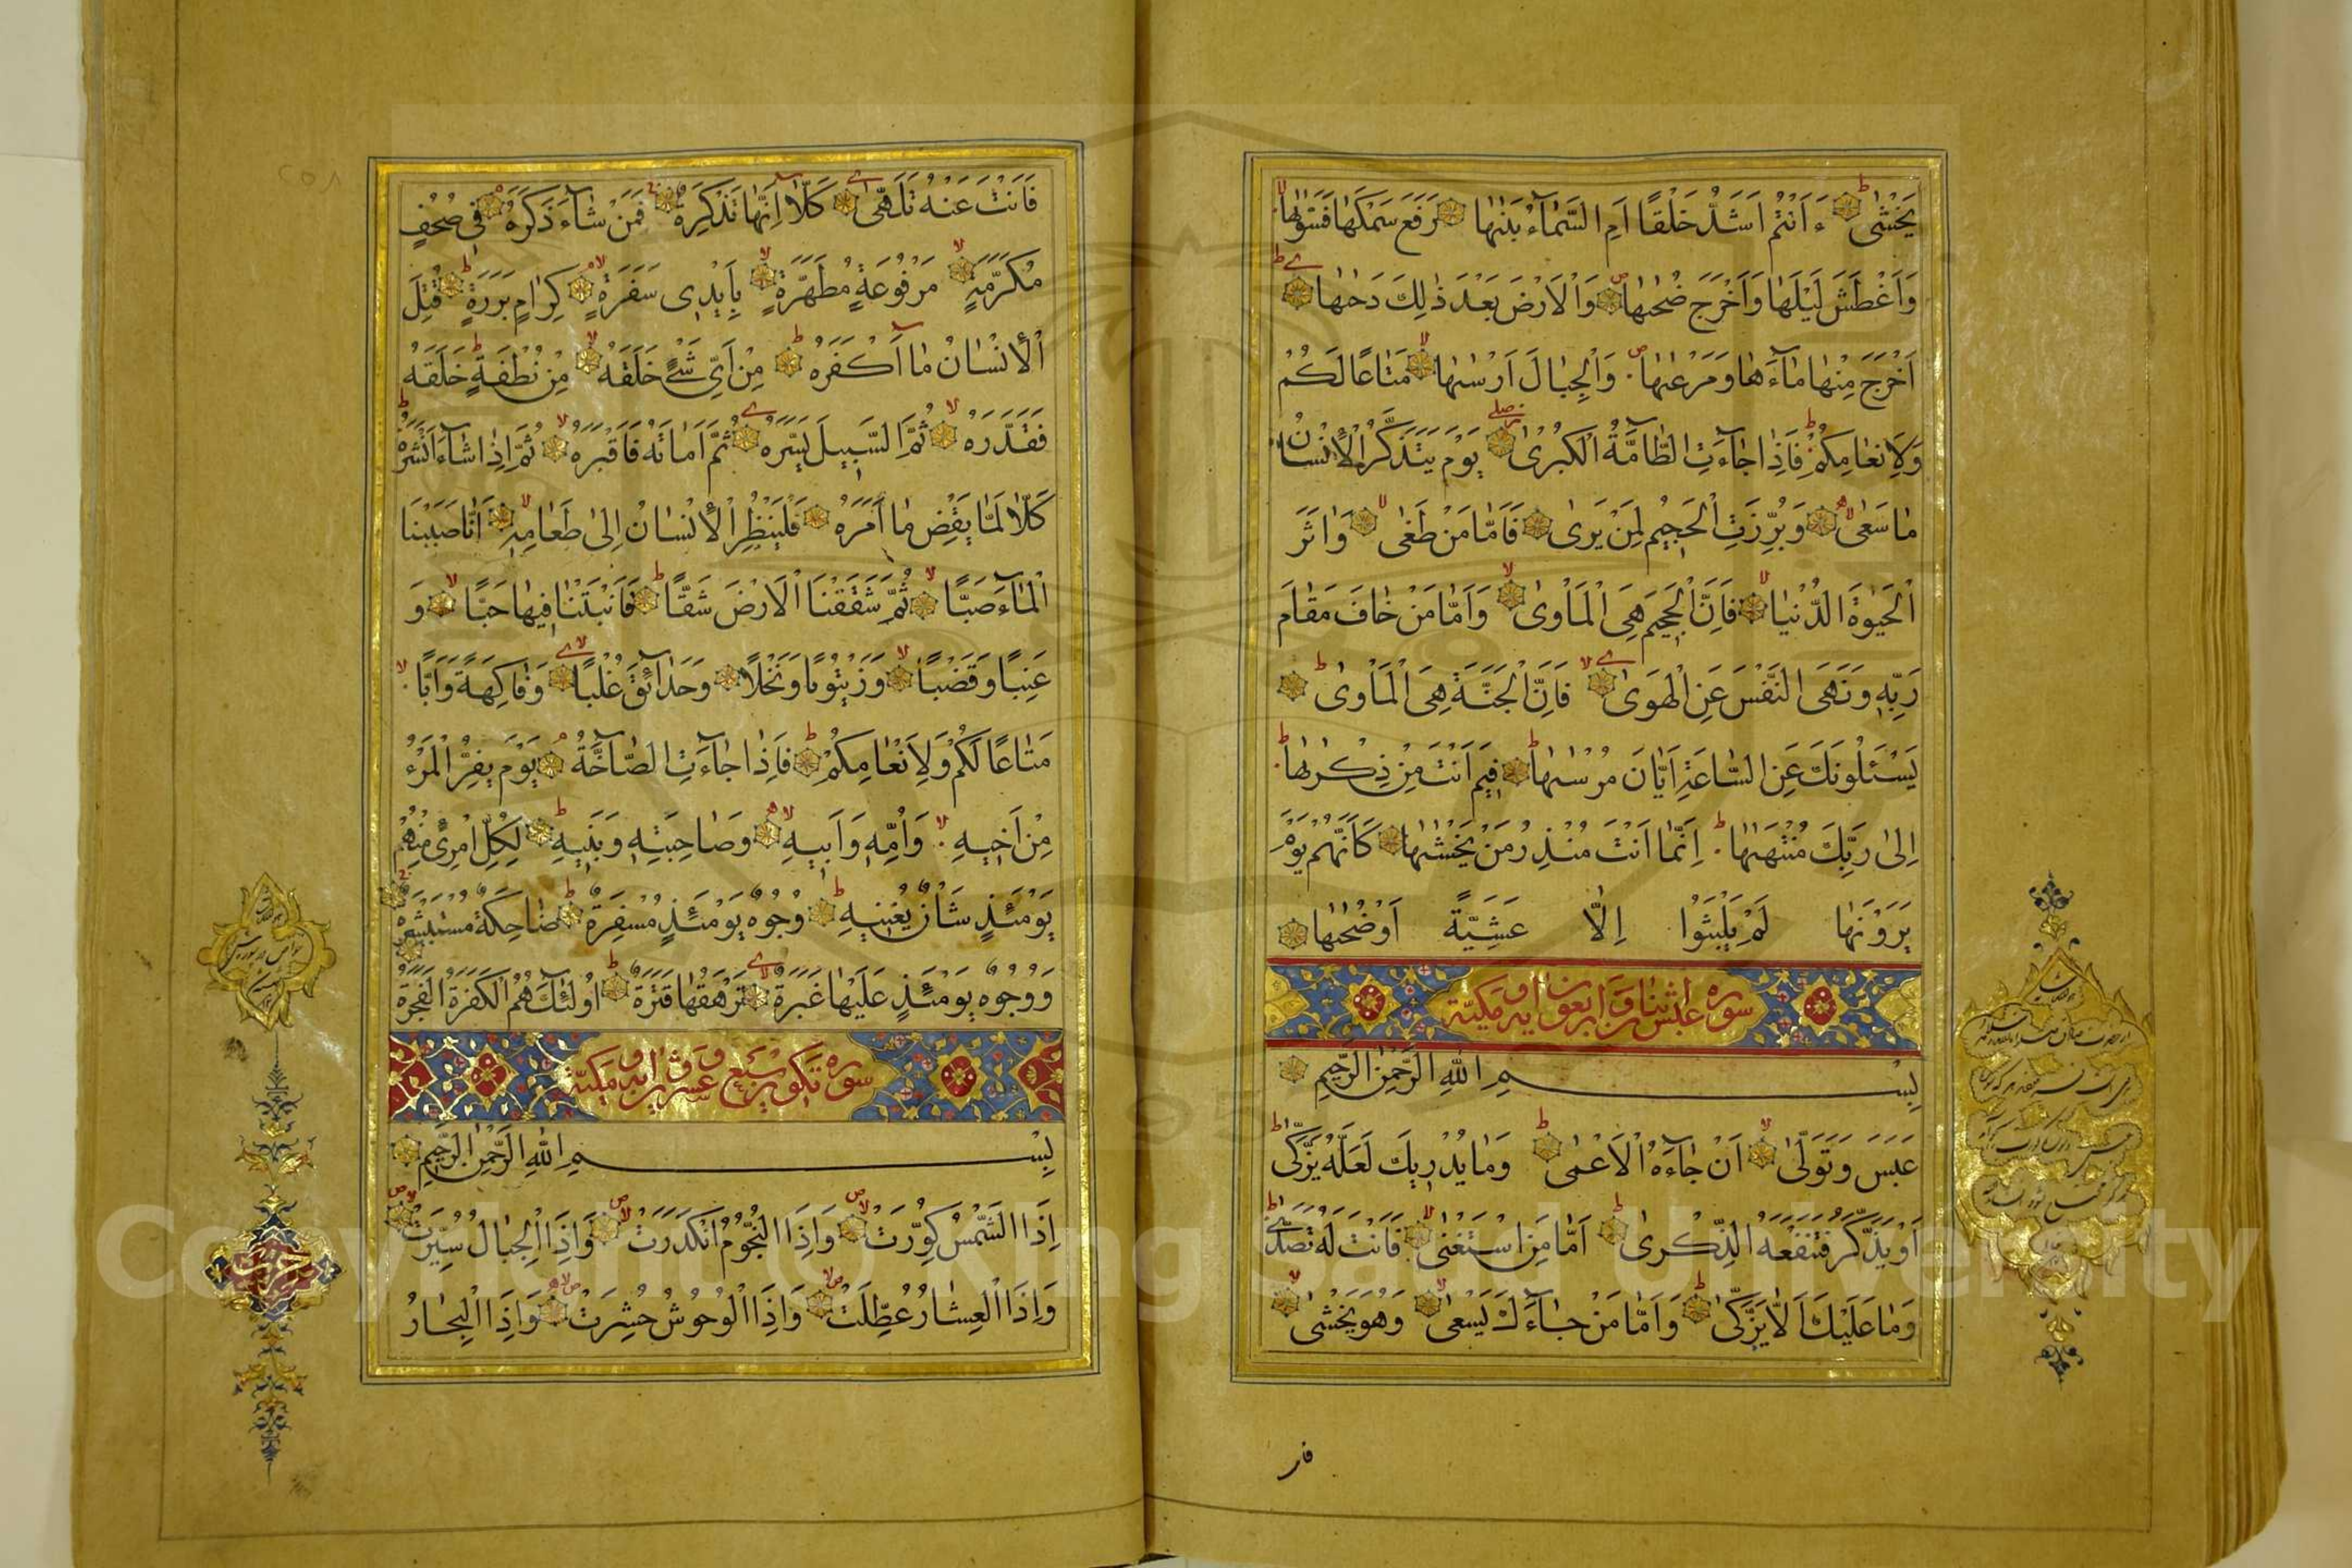 يَخْشٰى ءَاَنْتُمْ اَشَدُّ خَلْقًا اَمِ السَّمَاءُ بَنٰيهَا رَفَعَ سَمْكَهَا فَسَوّٰيهَا
وَاَغْطَشَ لَيْلَهَا وَاَخْرَجَ ضُحٰيهَا وَالْاَرْضَ بَعْدَ ذٰلِكَ دَحٰيهَا
اَخْرَجَ مِنْهَا مَاءَهَا وَمَرْعٰيهَا وَالْجِبَالَ اَرْسٰيهَا مَتَاعًا لَكُمْ
وَلِاَنْعَامِكُمْ فَاِذَا جَاءَتِ الطَّامَّةُ الْكُبْرٰى يَوْمَ يَتَذَكَّرُ الْاِنْسَانُ
مَا سَعٰى وَبُرِّزَتِ الْجَحِيمُ لِمَنْ يَرٰى فَاَمَّا مَنْ طَغٰى وَاٰثَرَ
الْحَيٰوةَ الدُّنْيَا فَاِنَّ الْجَحِيمَ هِىَ الْمَاْوٰى وَاَمَّا مَنْ خَافَ مَقَامَ
رَبِّهِ وَنَهَى النَّفْسَ عَنِ الْهَوٰى فَاِنَّ الْجَنَّةَ هِىَ الْمَاْوٰى
يَسْئَلُونَكَ عَنِ السَّاعَةِ اَيَّانَ مُرْسٰيهَا فِيمَ اَنْتَ مِنْ ذِكْرٰيهَا
اِلٰى رَبِّكَ مُنْتَهٰيهَا اِنَّمَا اَنْتَ مُنْذِرُ مَنْ يَخْشٰيهَا كَاَنَّهُمْ يَوْمَ
يَرَوْنَهَا لَمْ يَلْبَثُوا اِلَّا عَشِيَّةً اَوْ ضُحٰيهَا
سورة عبس اثنان و اربعون اية مكية
بِسْمِ اللهِ الرَّحْمٰنِ الرَّحِيمِ
عَبَسَ وَتَوَلّٰى اَنْ جَاءَهُ الْاَعْمٰى وَمَا يُدْرِيكَ لَعَلَّهُ يَزَّكّٰى
اَوْ يَذَّكَّرُ فَتَنْفَعَهُ الذِّكْرٰى اَمَّا مَنِ اسْتَغْنٰى فَاَنْتَ لَهُ تَصَدّٰى
وَمَا عَلَيْكَ اَلَّا يَزَّكّٰى وَاَمَّا مَنْ جَاءَكَ يَسْعٰى وَهُوَ يَخْشٰى
فا
فَاَنْتَ عَنْهُ تَلَهّٰى كَلَّا اِنَّهَا تَذْكِرَةٌ فَمَنْ شَاءَ ذَكَرَهُ فِى صُحُفٍ
مُكَرَّمَةٍ مَرْفُوعَةٍ مُطَهَّرَةٍ بِاَيْدِى سَفَرَةٍ كِرَامٍ بَرَرَةٍ قُتِلَ
الْاِنْسَانُ مَا اَكْفَرَهُ مِنْ اَىِّ شَىْءٍ خَلَقَهُ مِنْ نُطْفَةٍ خَلَقَهُ
فَقَدَّرَهُ ثُمَّ السَّبِيلَ يَسَّرَهُ ثُمَّ اَمَاتَهُ فَاَقْبَرَهُ ثُمَّ اِذَا شَاءَ اَنْشَرَهُ
كَلَّا لَمَّا يَقْضِ مَا اَمَرَهُ فَلْيَنْظُرِ الْاِنْسَانُ اِلٰى طَعَامِهِ اَنَّا صَبَبْنَا
الْمَاءَ صَبًّا ثُمَّ شَقَقْنَا الْاَرْضَ شَقًّا فَاَنْبَتْنَا فِيهَا حَبًّا وَ
عِنَبًا وَقَضْبًا وَزَيْتُونًا وَنَخْلًا وَحَدَائِقَ غُلْبًا وَفَاكِهَةً وَاَبًّا
مَتَاعًا لَكُمْ وَلِاَنْعَامِكُمْ فَاِذَا جَاءَتِ الصَّاخَّةُ يَوْمَ يَفِرُّ الْمَرْءُ
مِنْ اَخِيهِ وَاُمِّهِ وَاَبِيهِ وَصَاحِبَتِهِ وَبَنِيهِ لِكُلِّ امْرِئٍ مِنْهُمْ
يَوْمَئِذٍ شَاْنٌ يُغْنِيهِ وُجُوهٌ يَوْمَئِذٍ مُسْفِرَةٌ ضَاحِكَةٌ مُسْتَبْشِرَةٌ
وَوُجُوهٌ يَوْمَئِذٍ عَلَيْهَا غَبَرَةٌ تَرْهَقُهَا قَتَرَةٌ اُولٰئِكَ هُمُ الْكَفَرَةُ الْفَجَرَةُ
سورة تكوير تسع و عشرون اية مكية
بِسْمِ اللهِ الرَّحْمٰنِ الرَّحِيمِ
اِذَا الشَّمْسُ كُوِّرَتْ وَاِذَا النُّجُومُ انْكَدَرَتْ وَاِذَا الْجِبَالُ سُيِّرَتْ
وَاِذَا الْعِشَارُ عُطِّلَتْ وَاِذَا الْوُحُوشُ حُشِرَتْ وَاِذَا الْبِحَارُ
حزب
Copyright © King Saud University